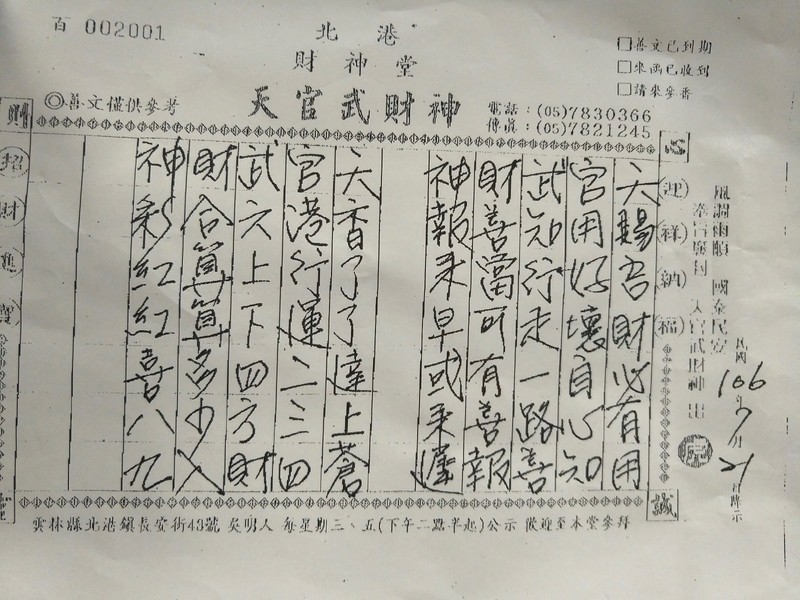 百 002001
北港
財神堂
天官武財神
◎善文僅供參考
電話：(05)7830366
傳真：(05)7821245
□善文已到期
□來函已收到
□請來參香
風調雨順 國泰民安
奉旨 天官武財神 出
民國106年7月21日降示
心
迎祥納福
誠
天賜吾財必有用
官用好壞自心知
武知行走一路善
財善當可有喜報
神報來早或來遲
天香了了達上蒼
官港行運二三四
武六上下四方財
財合算算多少入
神彩紅紅喜八九
財
招財進寶
雲林縣北港鎮長安街43號 吳明人 每星期三、五(下午二點半起)公示 歡迎至本堂參拜